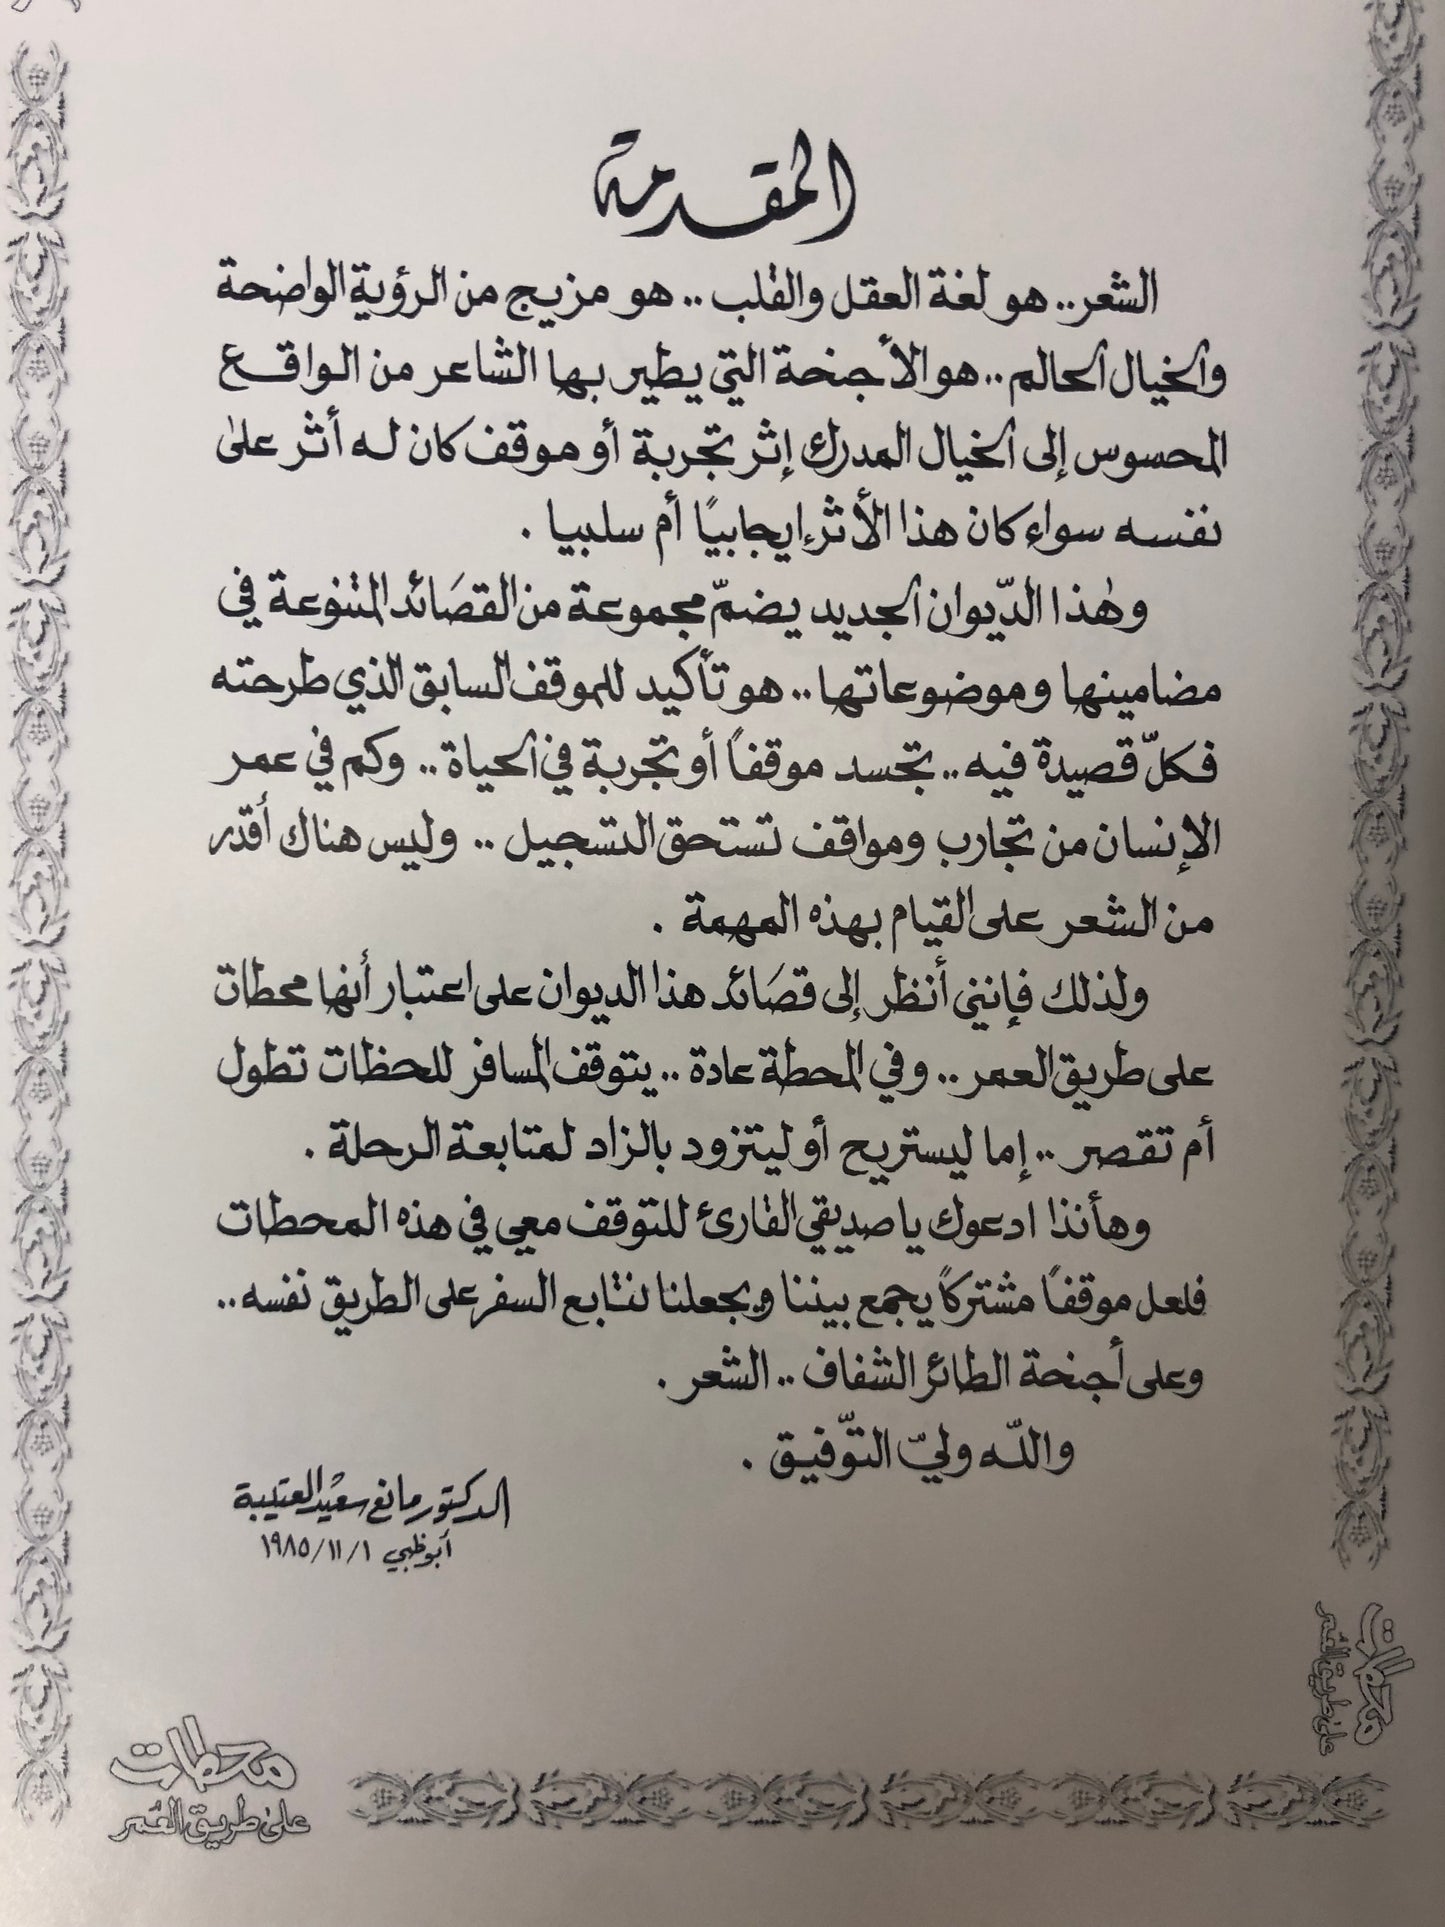 المقدمة
الشعر.. هو لغة العقل والقلب .. هو مزيج من الرؤية الواضحة
والخيال الحالم .. هو الأجنحة التي يطير بها الشاعر من الواقع
المحسوس إلى الخيال المدرك إثر تجربة أو موقف كان له أثر على
نفسه سواء كان هذا الأثر إيجابيًا أم سلبيا .
وهذا الدّيوان الجديد يضمّ مجموعة من القصَائد المتنوعة في
مضامينها وموضوعاتها .. هو تأكيد للموقف السابق الذي طرحته
فكلّ قصيدة فيه .. تجسد موقفاً أو تجربة في الحياة .. وكم في عمر
الإنسان من تجارب ومواقف تستحق التسجيل .. وليس هناك أقدر
من الشعر على القيام بهذه المهمة .
ولذلك فإنني أنظر إلى قصَائد هذا الديوان على اعتبار أنها محطات
على طريق العمر .. وفي المحطة عادة .. يتوقف المسافر للحظات تطول
أم تقصر .. إما ليستريح أو ليتزود بالزاد لمتابعة الرحلة .
وهأنذا ادعوك يا صديقي القارئ للتوقف معي في هذه المحطات
فلعل موقفاً مشتركاً يجمع بيننا ويجعلنا نتابع السفر على الطريق نفسه ..
وعلى أجنحة الطائر الشفاف .. الشعر .
والله وليّ التوّفيق .
الدكتور مانع سعيد العتيبة
أبوظبي ١/١١/١٩٨٥
محطات
على طريق العُمر
محطات
على طريق العُمر